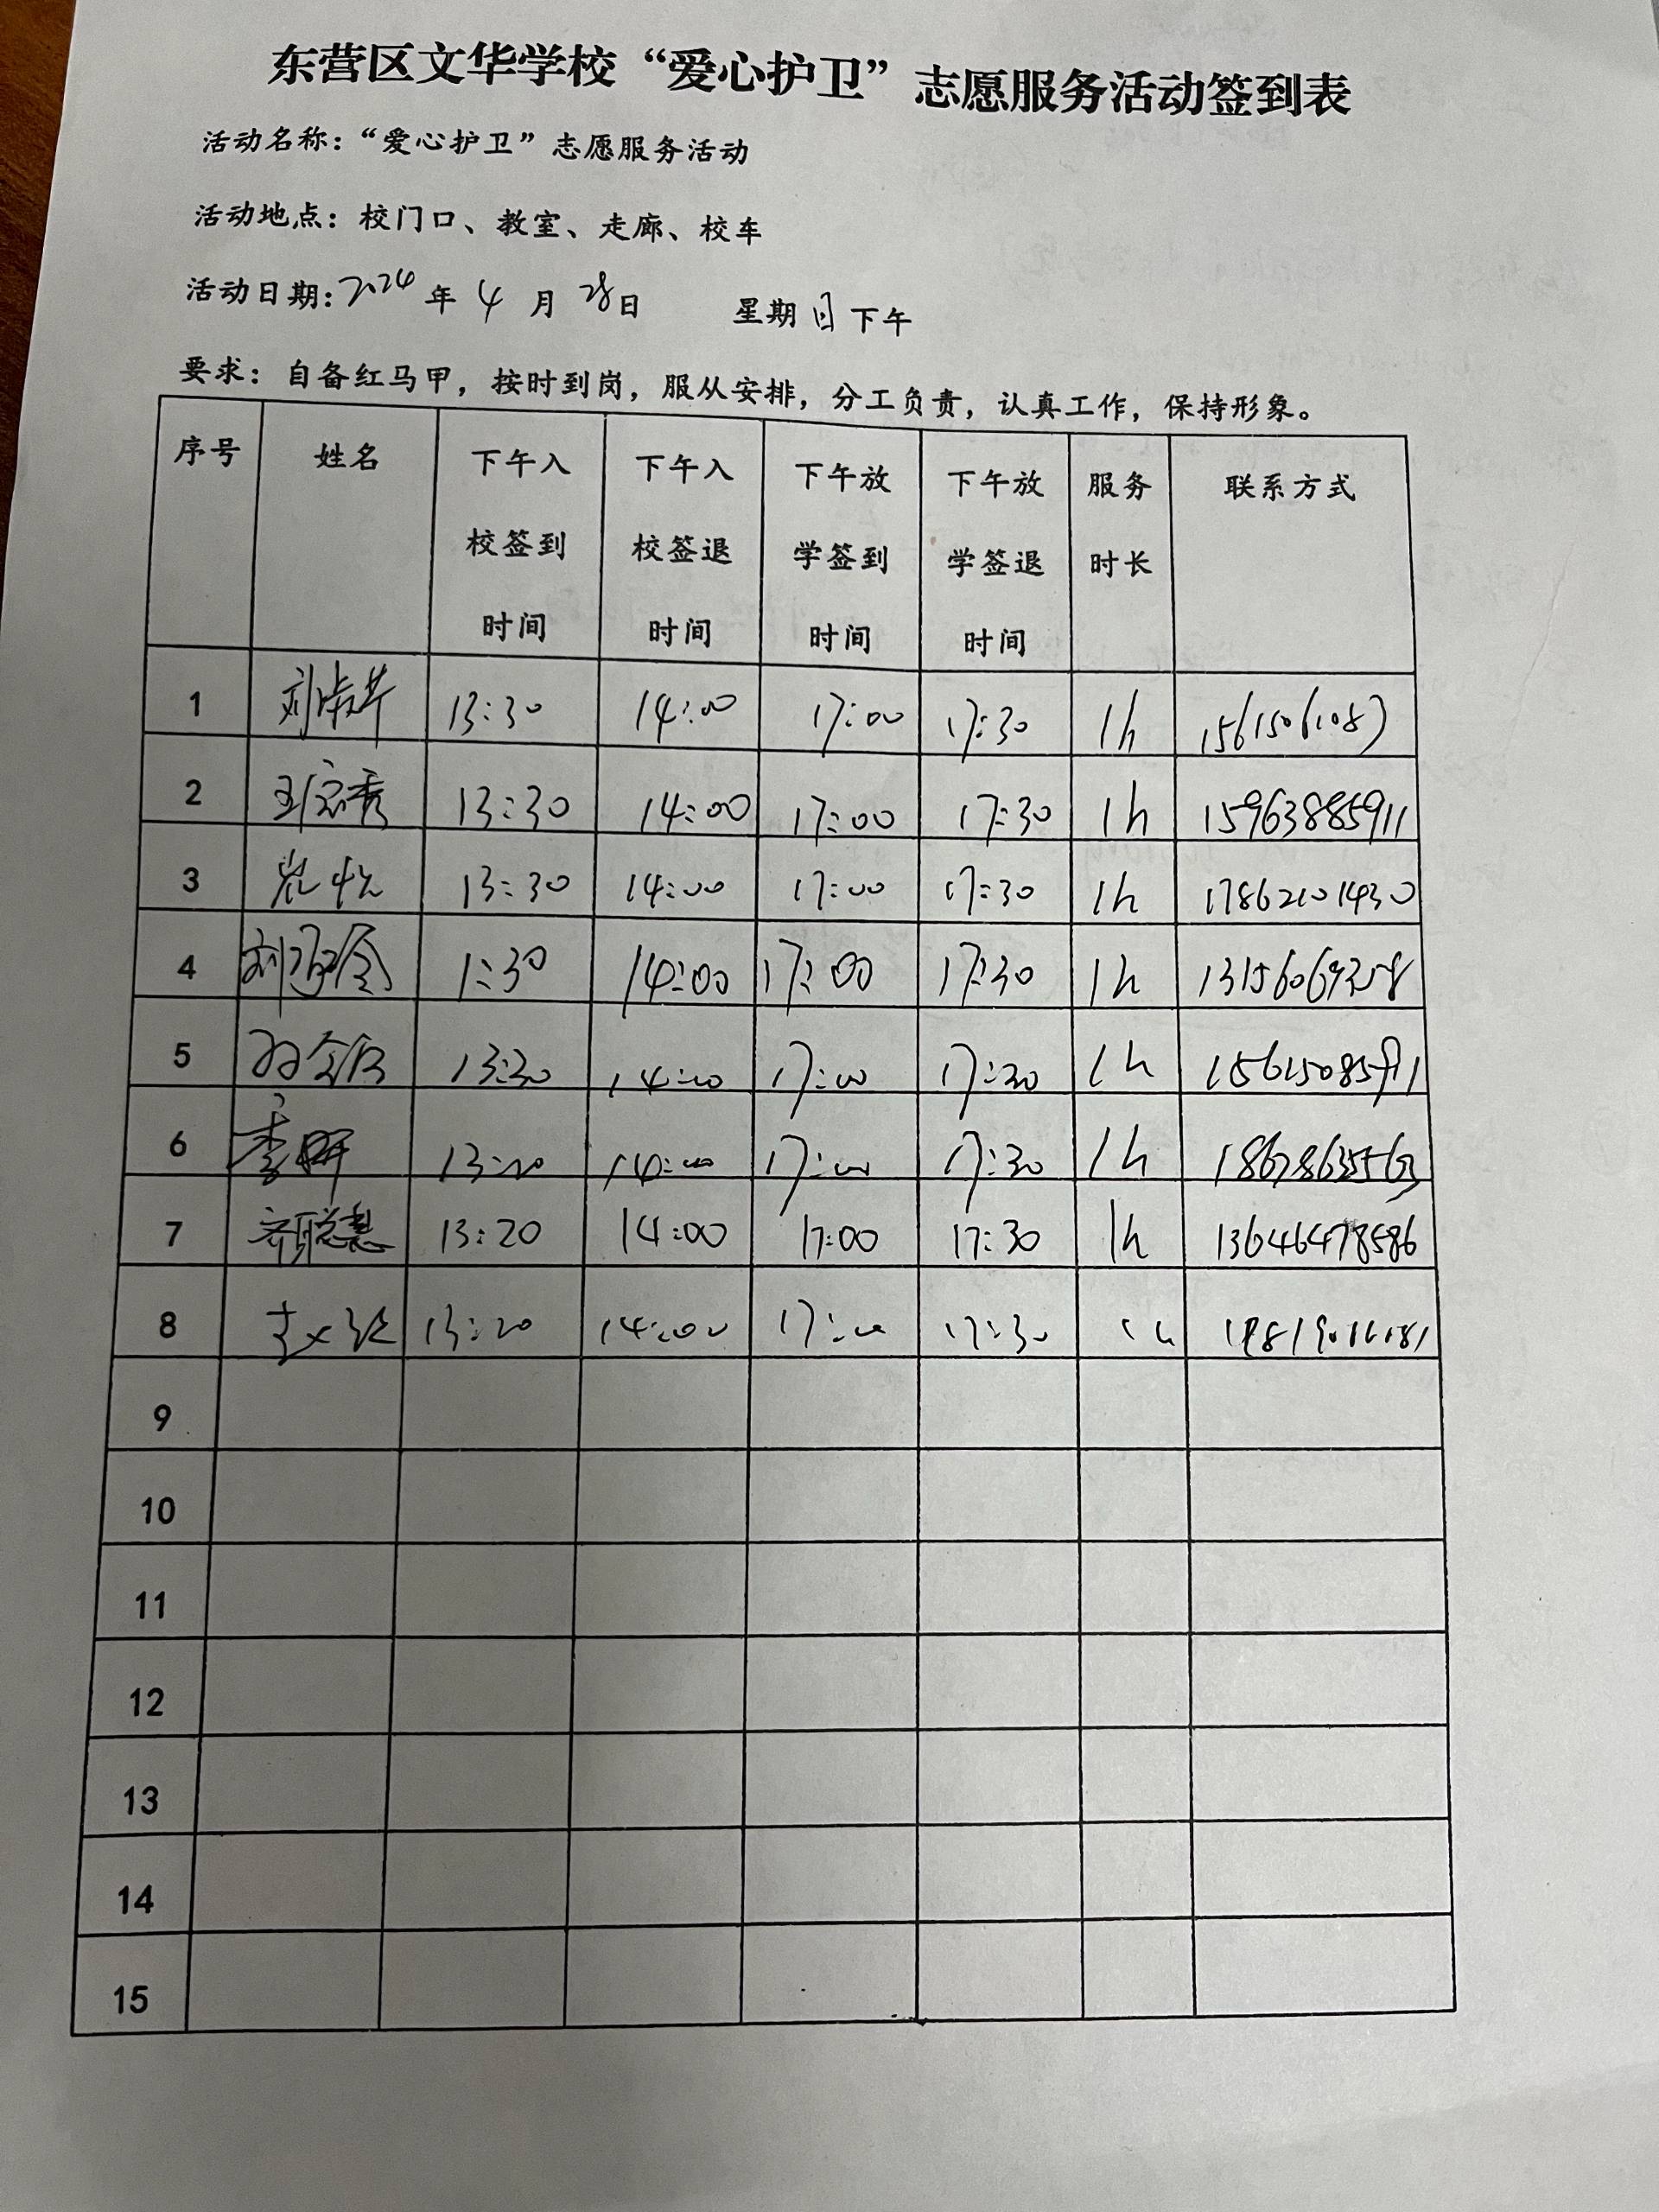 东营区文华学校“爱心护卫”志愿服务活动签到表
活动名称：“爱心护卫”志愿服务活动
活动地点：校门口、教室、走廊、校车
活动日期：2024年4月28日 星期日下午
要求：自备红马甲，按时到岗，服从安排，分工负责，认真工作，保持形象。
序号 姓名 下午入校签到时间 下午入校签退时间 下午放学签到时间 下午放学签退时间 服务时长 联系方式
1 13:30 14:00 17:00 17:30 1h
2 13:30 14:00 17:00 17:30 1h 15963885911
3 13:30 14:00 17:00 17:30 1h 17862101430
4 1:30 14:00 17:00 17:30 1h
5 13:30 14:00 17:00 17:30 1h
6 14:00 17:00 17:30 1h
7 齐聪慧 13:20 14:00 17:00 17:30 1h 13646478586
8 13:20 14:00 17:00 17:30 1h
9
10
11
12
13
14
15